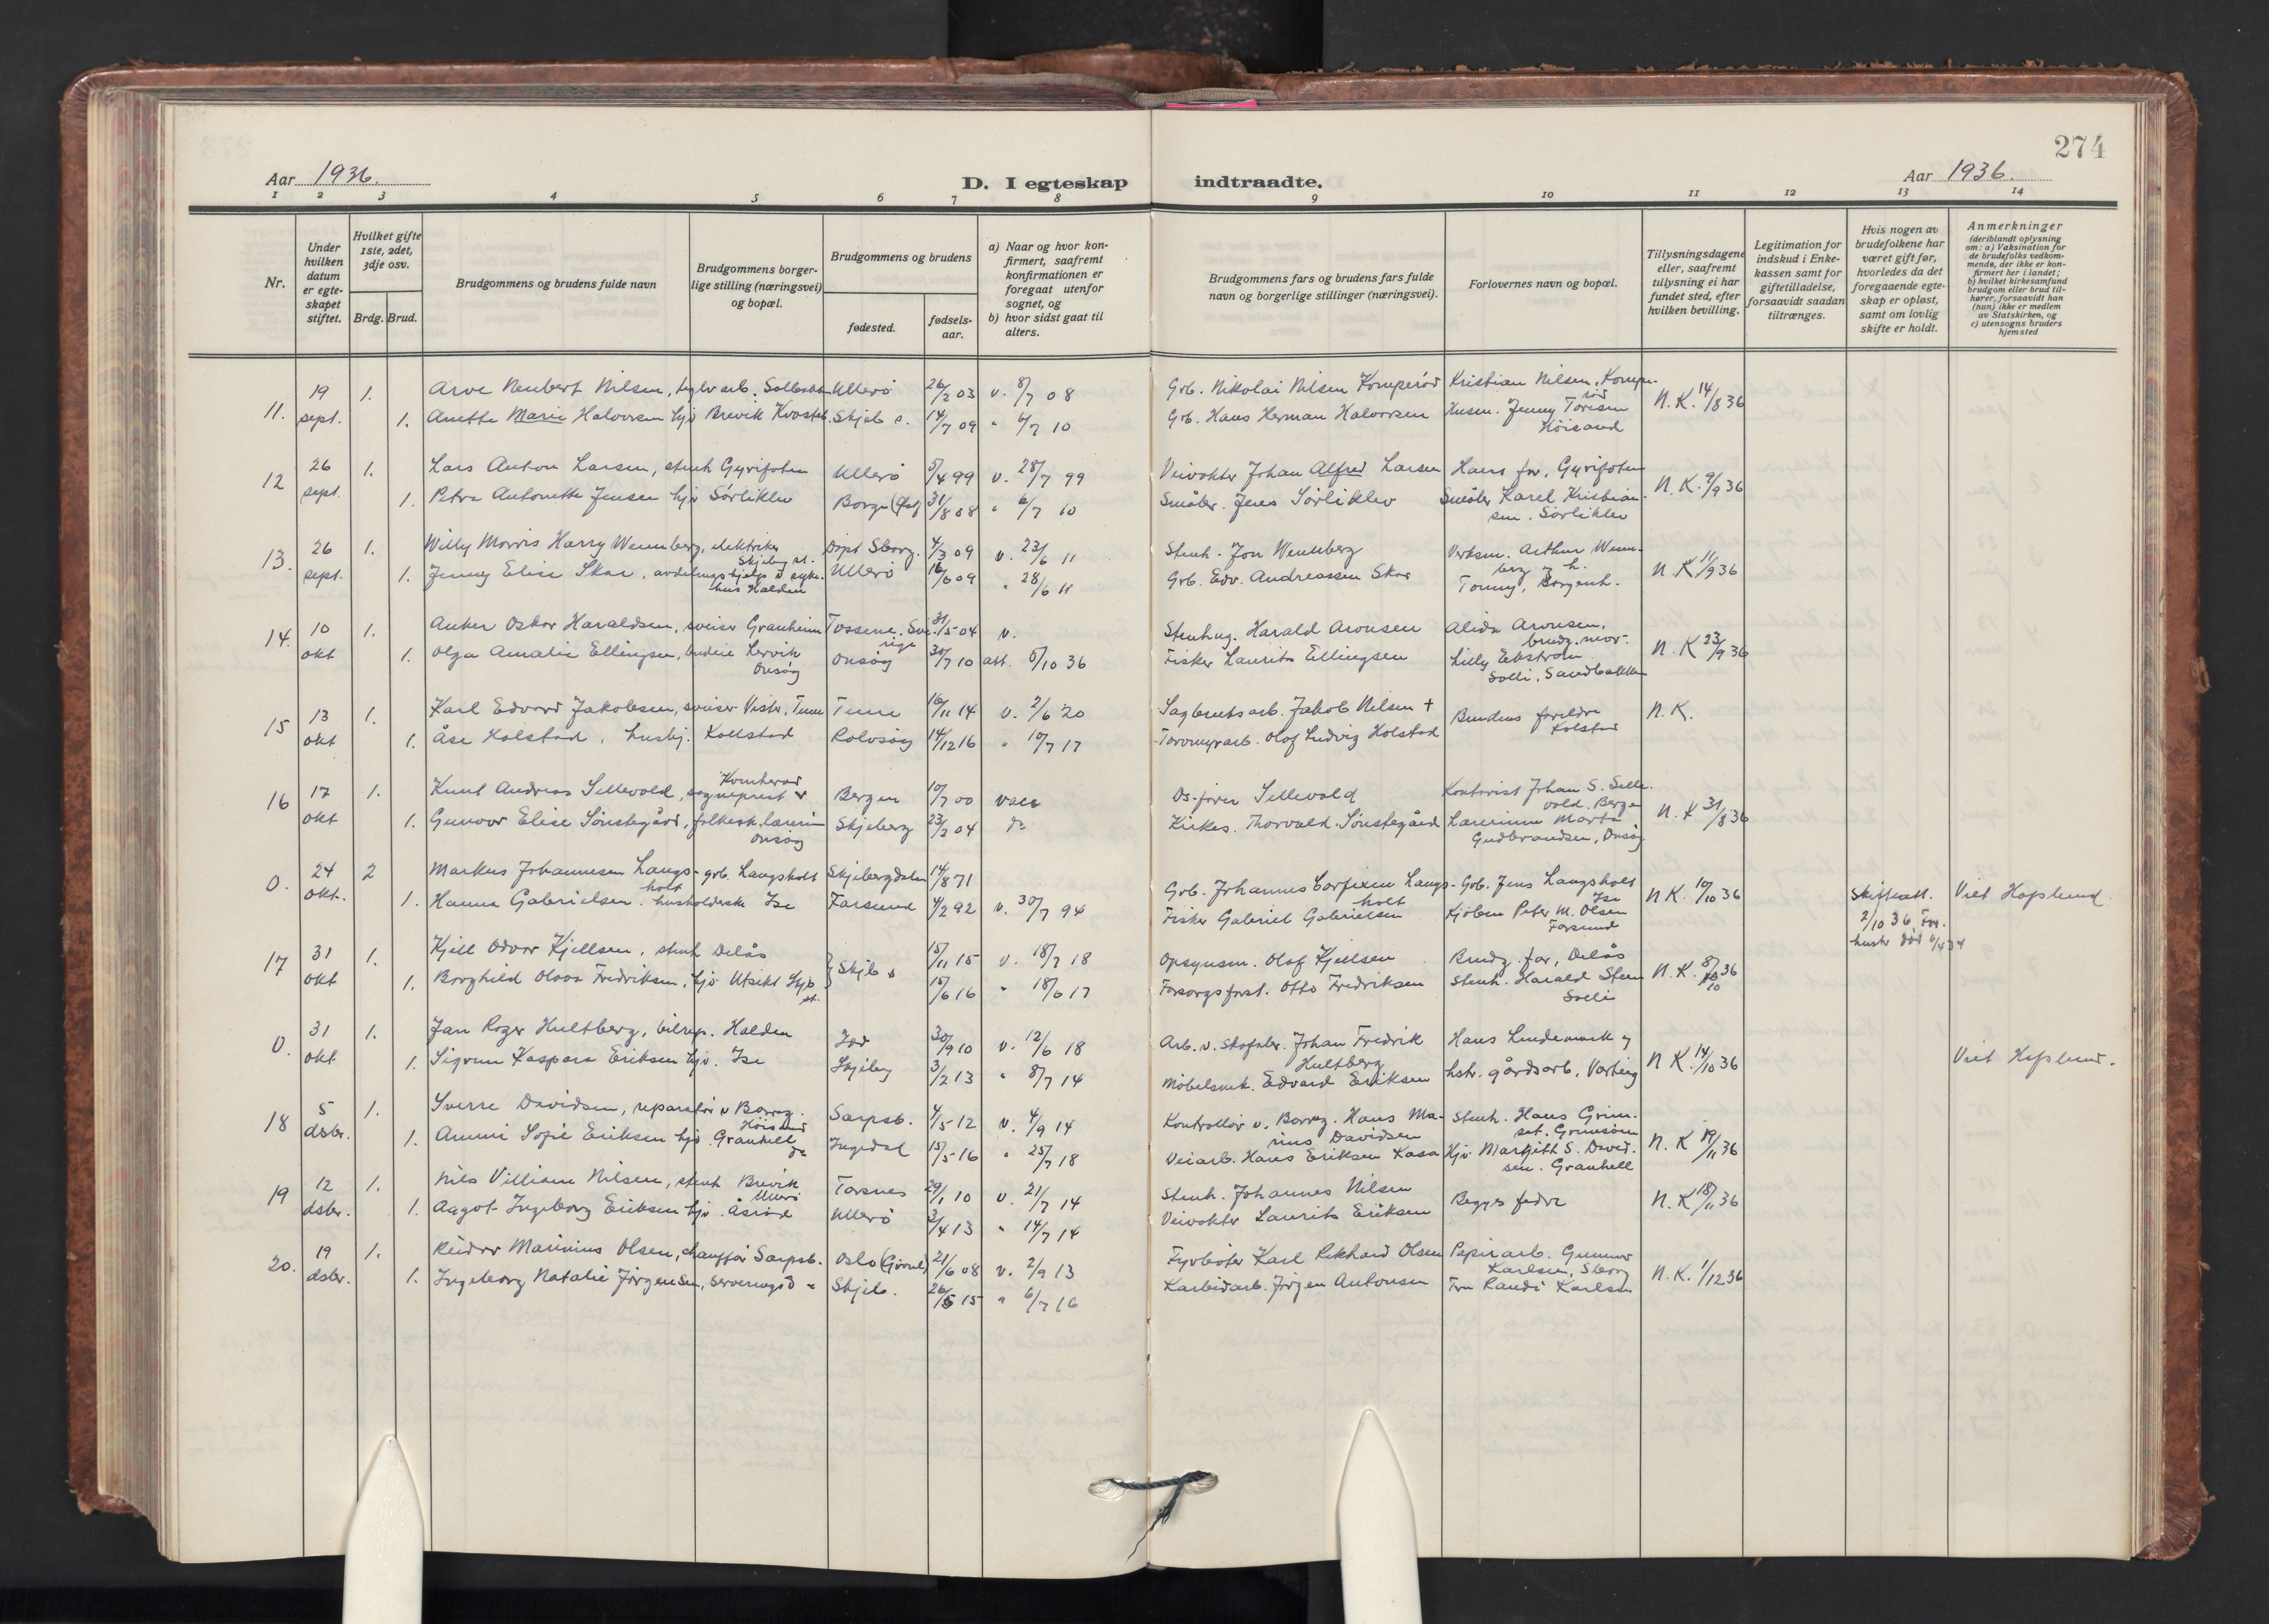 274
Aar 1936.
D. I egteskap indtraadte.
Aar 1936.
1 2 3 4 5 6 7 8 9 10 11 12 13 14
Nr.
Under hvilken datum er egteskapet stiftet.
Hvilket gifte 1ste, 2det, 3dje osv.
Brdg. Brud.
Brudgommens og brudens fulde navn
Brudgommens borgerlige stilling (næringsvei) og bopæl.
Brudgommens og brudens
fødested.
fødselsaar.
a) Naar og hvor konfirmert, saafremt konfirmationen er foregaat utenfor sognet, og
b) hvor sidst gaat til alters.
Brudgommens fars og brudens fars fulde navn og borgerlige stillinger (næringsvei).
Forlovernes navn og bopæl.
Tillysningsdagene eller, saafremt tillysning ei har fundet sted, efter hvilken bevilling.
Legitimation for indskud i Enkekassen samt for giftetilladelse, forsaavidt saadan tiltrænges.
Hvis nogen av brudefolkene har været gift før, hvorledes da det foregaaende egteskap er opløst, samt om lovlig skifte er holdt.
Anmerkninger
(deriblandt oplysning om: a) Vaksination for de brudefolks vedkommende, der ikke er konfirmert her i landet;
b) hvilket kirkesamfund brudgom eller brud tilhører, forsaavidt han (hun) ikke er medlem av Statskirken, og
c) utensogns bruders hjemsted
11. 19 sept. 1. Arve Neubert Nilsen, Ullerö 26/2 03 v. 8/7 08 Grb. Nikolai Nilsen Komperöd Kristian Nilsen, Komperöd N.K. 14/8 36
1. Anette Marie Halvorsen hjv Brevik Skjeb. 14/7 09 " 4/7 10 Grb. Hans Herman Halvorsen Husm. Jenny Höisand
12 26 sept. 1. Lars Anton Larsen, stenh Gyrifoten Ullerö 5/4 99 v. 28/7 99 Veivokter Johan Alfred Larsen Hans far, Gyrifoten N.K. 9/9 36
1. Petra Antonette Jensen hjv Sörliklev Borge (Øst) 31/8 08 " 6/7 10 Småbr. Jens Sörliklev Småbr Karel Kristiansen. Sörliklev
13. 26 sept. 1. Willy Morris Harry Wennberg, elektriker Skjeberg st. Sborg. 4/3 09 v. 23/6 11 Stenh. Jon Wennberg Verksm. Arthur Wennberg N.K. 11/9 36
1. Jenny Elise Skar, avdelingshjelp v sykehus Halden Ullerö 16/6 09 " 28/6 11 Grb. Edv. Andreassen Skar Borgenh.
14. 10 okt 1. Anker Oskar Haraldsen, sveiser Granheim Tossene. Sverige 31/5 04 v. Stenhug. Harald Aronsen Alida Aronsen, brudg. mor. N.K 23/9 36
1. Olga Amalie Ellingsen, budeie Lervik Onsöy Onsöy 30/7 10 att. 5/10 36 Fisker Laurits Ellingsen Lilly Ekström Solli, Sandbakken
15 13 okt 1. Karl Edvard Jakobsen, sveiser Vister, Tune Tune 16/11 14 v. 2/6 20 Sagbruksarb. Jakob Nilsen + Brudens foreldre Kolstad N.K.
1. Åse Holstad, husbj. Kolstad Rolvsöy 14/12 16 " 10/7 17 Torvmyrarb. Olof Ludvig Holstad
16 17 okt 1. Knut Andreas Sellevold, sogneprest Bergen 10/7 00 vacc Sellevold Kontorist Johan S. Sellevold. Bergen N.K 31/8 36
1. Gunvor Elise Sönstegård, folkesk.lærerin Onsöy Skjeberg 23/2 04 do Kirkes. Thorvald Sönstegård Lærerinne Marta Gudbrandsen, Onsöy
0. 24 okt. 2 Markus Johannesen Langsholt grb. Langsholt Skjebergdalen 14/8 71 Grb. Johannes Langsholt Grb. Jens Langsholt Ise N.K. 10/10 36 Skifteatt. 2/10 36 For. hustr död 6/4 34 Viet Hafslund.
1. Hanna Gabrielsen. husholderske Ise Farsund 4/2 92 v. 30/7 94 Fisker Gabriel Gabrielsen Kjöbm Peter M. Olsen Farsund
17 31 okt 1. Kjell Odvar Kjellsen, stenh Delås } Skjeb 15/11 15 v. 18/7 18 Opsynsm. Olof Kjellsen Brudg. far, Delås N.K. 8/10 36
1. Borghild Olava Fredriksen, hjv Utsikt Skjb st. 15/6 16 " 18/6 17 Forsorgsforst. Otto Fredriksen Stenh. Harald Steen Solli
0. 31 okt 1. Jan Roger Hultberg, bilrep. Halden Idd 30/9 10 v. 12/6 18 Arb. v. Skofabr. Johan Fredrik Hultberg Hans Lindemark og hstr. gårdsarb, Varteig N.K. 14/10 36 Viet Hafslund.
1. Sigrun Kaspara Eriksen hjv. Ise Skjeberg 3/2 13 " 8/7 14 Möbelsnek. Edvard Eriksen
18 5 dsbr. 1. Sverre Davidsen, reparatör v Borreg. Höisand Sarpsb. 4/5 12 v. 4/9 14 Kontrollör v. Borreg. Hans Marius Davidsen Stenh. Hans N.K 19/11 36
1. Ammi Sofie Eriksen hjv. Granhell Ingedal 15/5 16 " 25/7 18 Veiarb. Hans Eriksen Kasa Hjv Margith S. Davidsen. Granhell
19 12 dsbr. 1. Nils Villiam Nilsen, stenh Brevik Ullerö Torsnes 29/1 10 v. 21/7 14 Stenh. Johannes Nilsen Begges fedre N.K 18/11 36
1. Aagot Ingeborg Eriksen hjv. Åsröd Ullerö 3/4 13 " 14/7 14 Veivokter Laurits Eriksen
20. 19 dsbr. 1. Reidar Marinius Olsen, chaufför Sarpsb. Oslo 21/6 08 v. 2/9 13 Fyrböter Karl Rikhard Olsen Papirarb. Gunnar Karlsen, Sborg N.K. 1/12 36
1. Ingeborg Natalie Jörgensen, serveringsd " Skjeb. 26/5 15 " 6/7 16 Karbidarb. Jörgen Antonsen Fru Randi Karlsen